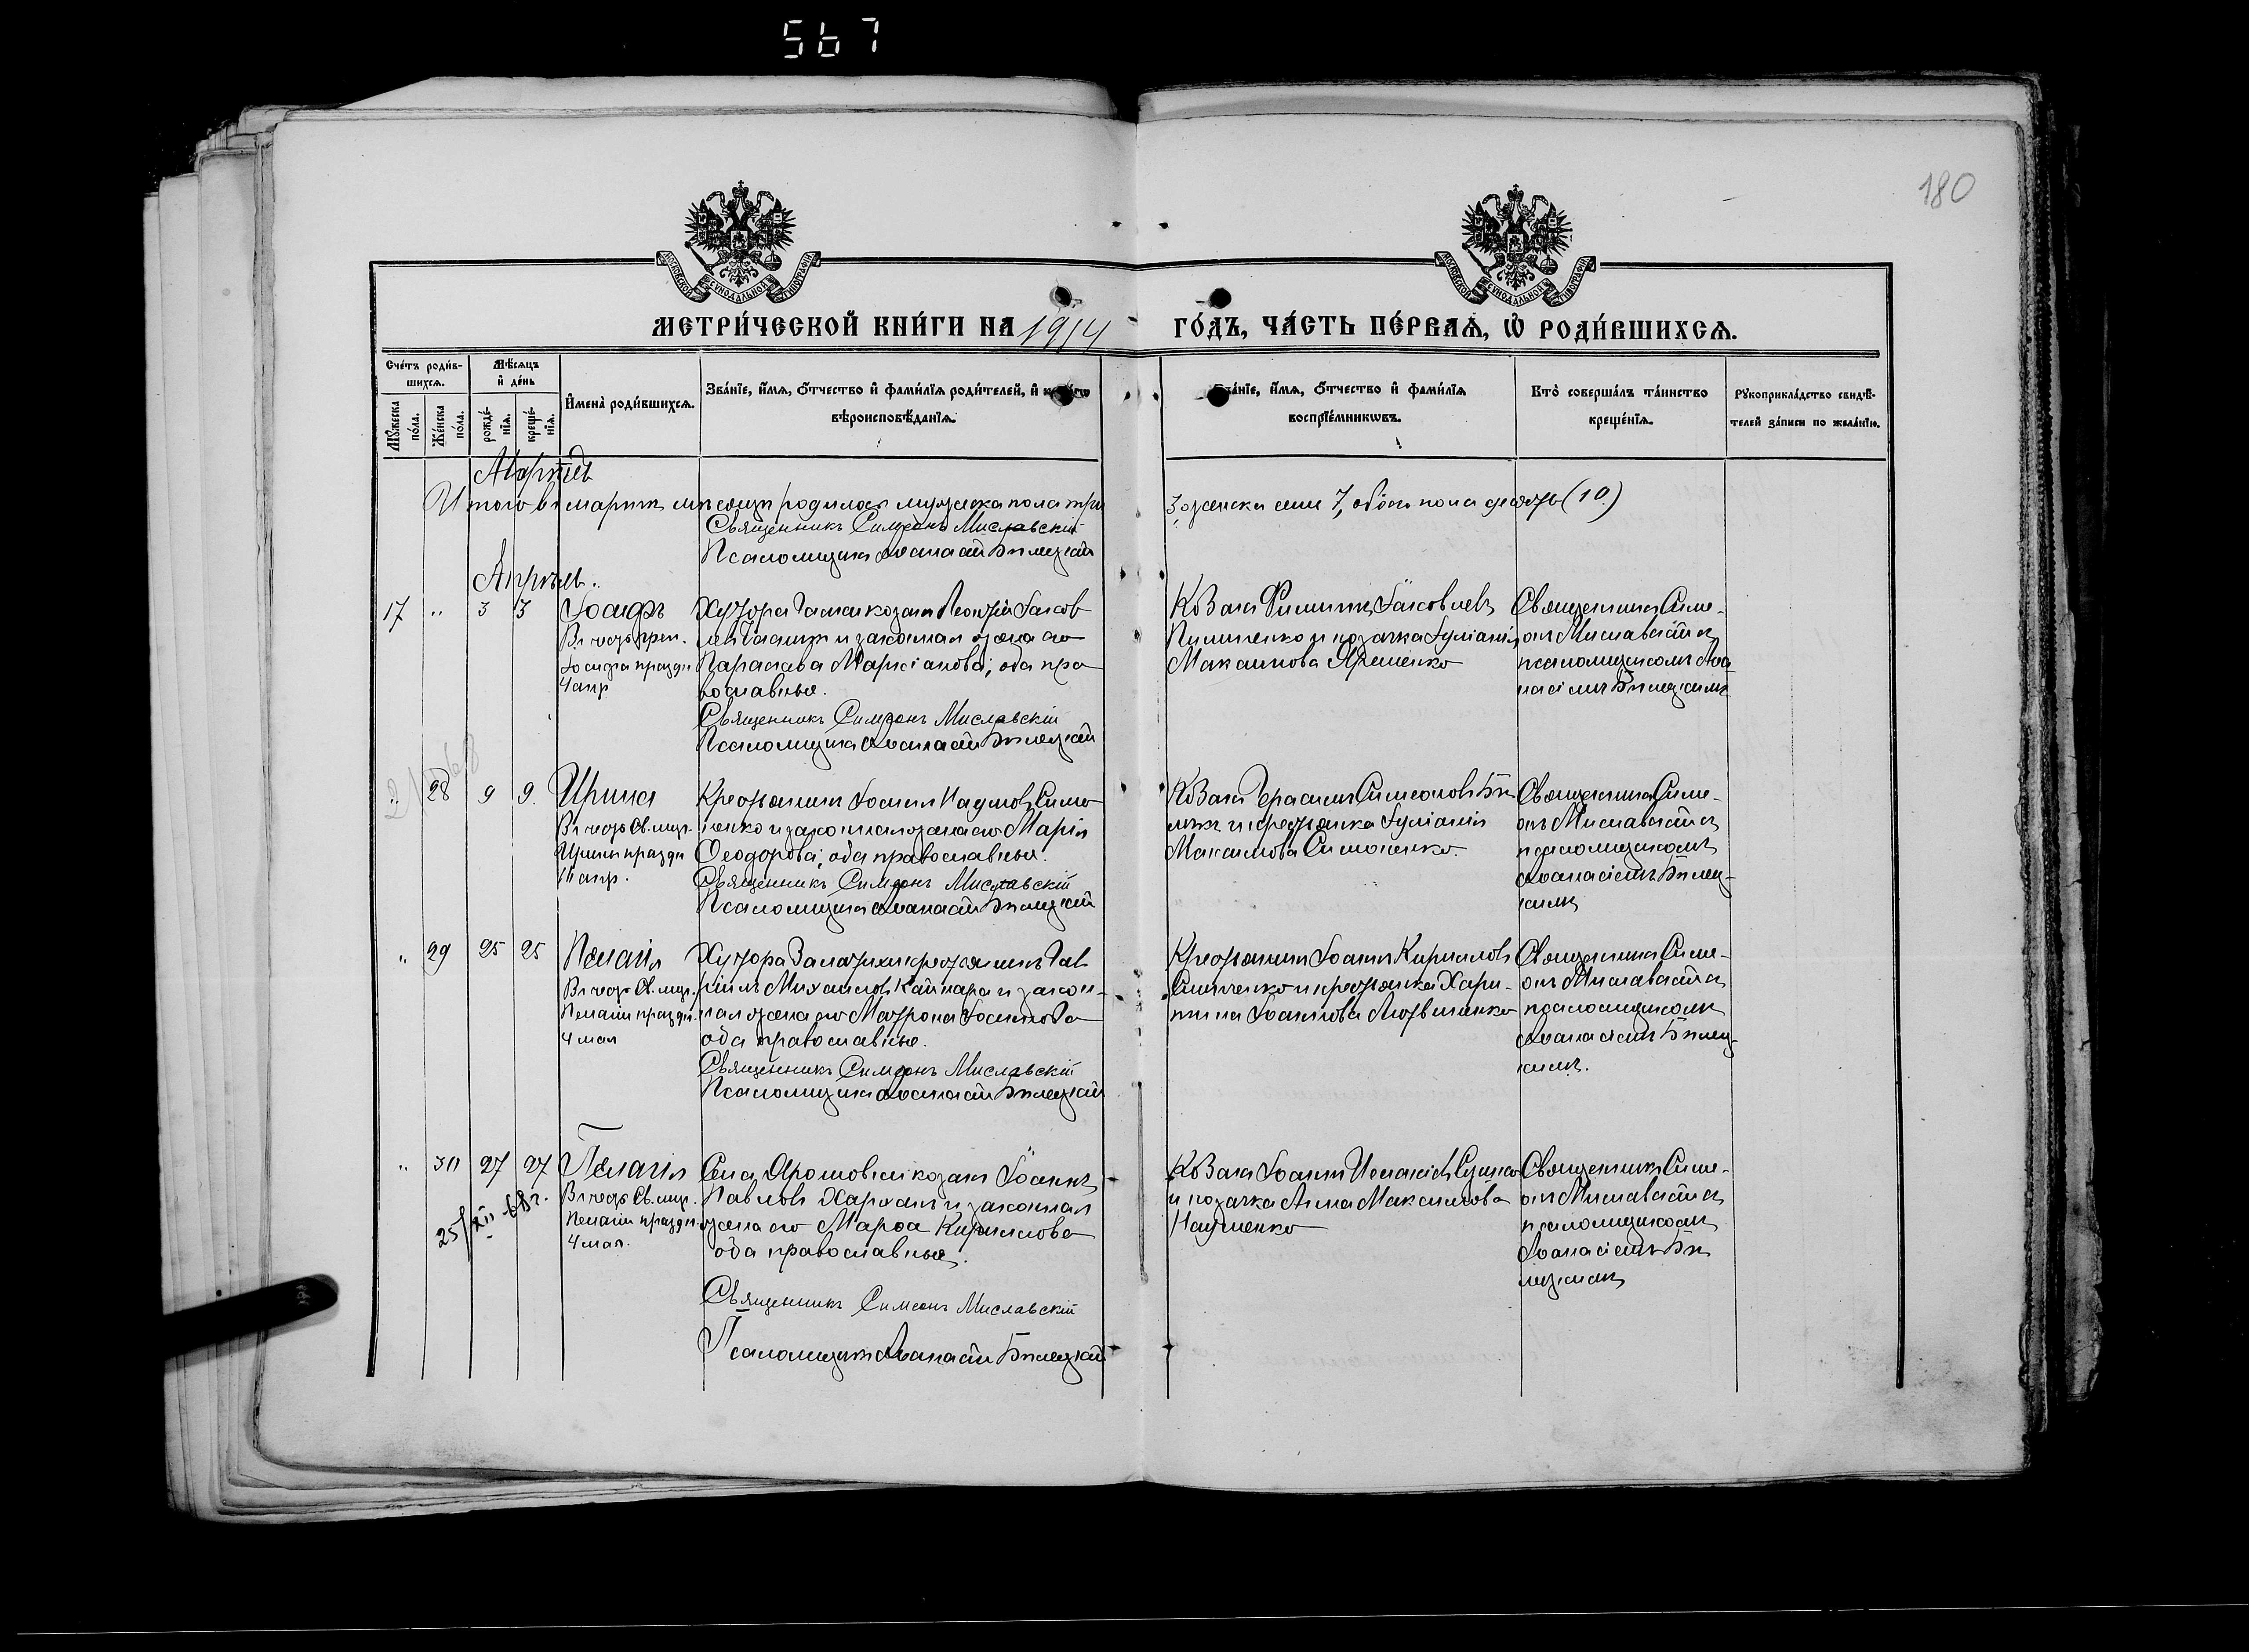 567
180
МОСКОВСКОЙ СѴНОДАЛЬНОЙ ТИПОГРАФІИ
МОСКОВСКОЙ СѴНОДАЛЬНОЙ ТИПОГРАФІИ
МЕТРИ́ЧЕСКОЙ КНИ́ГИ НА 1914 ГО́ДЪ, ЧА́СТЬ ПЕ́РВАѦ, Ѡ҆ РОДИ́ВШИХСѦ.
Сче́тъ роди́в-
шихсѧ.
Мꙋ́жеска
по́ла.
Же́нска
по́ла.
Мѣ́сѧцъ
и҆ де́нь
рожде́-
нїѧ.
креще́-
нїѧ.
И҆мена̀ роди́вшихсѧ.
Зва́нїе, и҆́мѧ, ѻ҆́тчество и҆ фами́лїѧ роди́телей, и҆
вѣроисповѣ́данїѧ.
Зва́нїе, и҆́мѧ, ѻ҆́тчество и҆ фами́лїѧ
воспрїе́мникѡвъ.
Кто̀ соверша́лъ та́инство
креще́нїѧ.
Рꙋкоприкла́дство свидѣ́-
телей за́писи по жела́нїю.
Итого въ мартѣ мѣсяцѣ родилось мужеска пола три
3, женска семь 7, обоего пола десять (10)
Священникъ Симеонъ Миславскій
Псаломщикъ Аѳанасій Бѣлецкій
Апрѣль.
17 " 3 3 Іосифъ
Въ честь преп.
Іосифа праздн
4 апр
козакъ Іаков
левъ и законная жена его
Параскева Маркіанова, оба пра
вославные.
Священникъ Симеонъ Миславскій
Псаломщикъ Аѳанасій Бѣлецкій
Козакъ Филиппъ Іаковлевъ
Пилипенко и козачка Іуліанія
Максимова Яременко
Священникъ Симе-
онъ Миславскій съ
псаломщикомъ Аѳа
насіемъ Бѣлецкимъ
" 28 9 9. Ирина
Въ честь Св. муч.
Ирины праздн
16 апр.
Крестьянинъ Іоаннъ Наумовъ Симо
ненко и законная жена его Марія
Ѳеодорова, оба православные.
Священникъ Симеонъ Миславскій
Псаломщикъ Аѳанасій Бѣлецкій
Козакъ Герасимъ Симеоновъ Бѣ
лыкъ и крестьянка Іуліанія
Максимова Симоненко.
Священникъ Симе-
онъ Миславскій съ
псаломщикомъ
Аѳанасіемъ Бѣлец-
кимъ
" 29 25 25 Пелагія
Въ честь Св. муч.
Пелагіи праздн.
4 мая
Хутора крестьянинъ Гав
ріилъ Михаиловъ Кайнара и закон-
ная жена его Матрона Іоаннова
оба православные.
Священникъ Симеонъ Миславскій
Псаломщикъ Аѳанасій Бѣлецкій
Крестьянинъ Іоаннъ Кирилловъ
и крестьянка Хари-
тина Іоаннова Литвиненко
Священникъ Симе-
онъ Миславскій съ
псаломщикомъ
Аѳанасіемъ Бѣлец-
кимъ.
" 30 27 27 Пелагія
Въ честь Св. муч.
Пелагіи праздн.
4 мая.
25/XII-68г.
Села козакъ Іоаннъ
Павловъ и законная
жена его Марѳа Кириллова
оба православные.
Священникъ Симеонъ Миславскій
Псаломщикъ Аѳанасій Бѣлецкій
Козакъ Іоаннъ
и козачка Анна Максимова
Науменко
Священникъ Симе-
онъ Миславскій съ
псаломщикомъ
Аѳанасіемъ Бѣ
лецкимъ